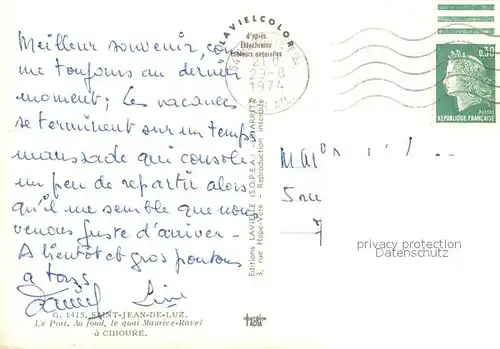 Meilleur souvenir, com
me toujours au dernier
moment; les vacances
se terminent sur un temps
maussade qui console
un peu de repartir alors
qu'il me semble que nous
venons juste d'arriver -
A bientôt et gros
à tous
G. 1415. SAINT-JEAN-DE-LUZ.
Le Port. Au fond, le quai Maurice-Ravel
à CIBOURE.
LAVIELCOLOR
d'après
Ektachrome
Couleurs naturelles
29-8
1974
Editions LAVIELLE (S.O.P.E.A.) - BIARRITZ
3, rue Hope-Vere - Reproduction interdite
0,30
POSTES
REPUBLIQUE FRANÇAISE
5 rue
7
privacy protection
Datenschutz